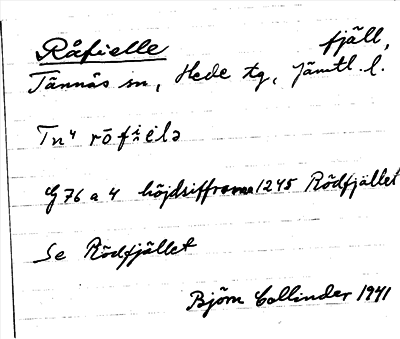 Råfielle fjäll,
Tännäs sn, Hede tg, Jämtl. l.
Tn⁴ rōfīelə
G 76 a 4 höjdsiffrorna 1245 Rödfjället
Se Rödfjället
Björn Collinder 1941